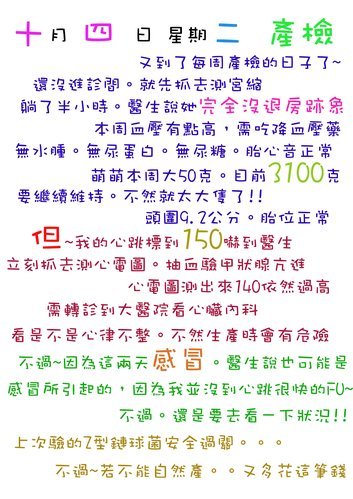 十月 四 日 星期二 產檢
又到了每周產檢的日子了~
還沒進診間。就先抓去測宮縮
躺了半小時。醫生說她完全沒退房跡象
本周血壓有點高，需吃降血壓藥
無水腫。無尿蛋白。無尿糖。胎心音正常
萌萌本周大50克。目前3100克
要繼續維持。不然就太大隻了!!
頭圍9.2公分。胎位正常
但~我的心跳標到150嚇到醫生
立刻抓去測心電圖。抽血驗甲狀腺亢進
心電圖測出來140依然過高
需轉診到大醫院看心臟內科
看是不是心律不整。不然生產時會有危險
不過~因為這兩天感冒。醫生說也可能是
感冒所引起的，因為我並沒到心跳很快的FU~
不過。還是要去看一下狀況!!
上次驗的Z型鏈球菌安全過關。。。
不過~若不能自然產。。又多花這筆錢